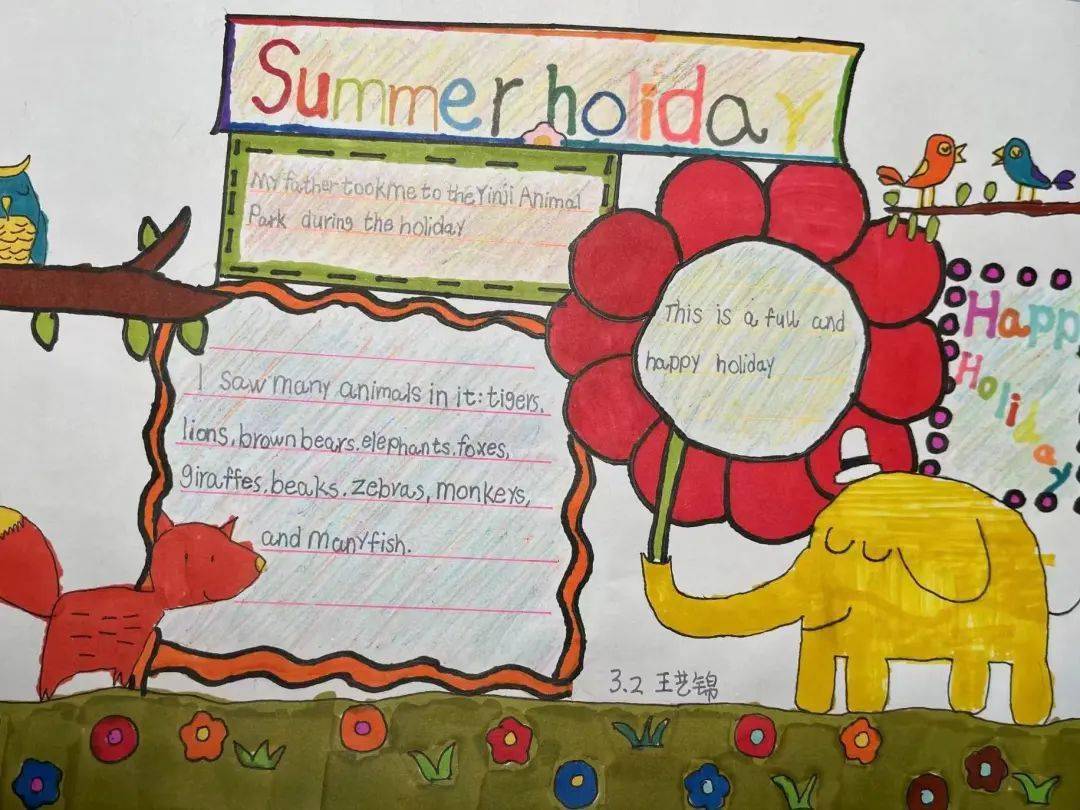 Summer holiday
My father took me to the Yinji Animal
Park during the holiday
This is a full and
happy holiday
Happy
Holiday
I saw many animals in it: tigers.
lions. brown bears. elephants. foxes,
giraffes. beaks. zebras, monkeys,
and many fish.
3.2 王艺锦